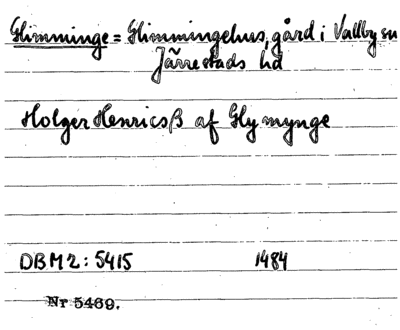 Glimminge = Glimmingehus, gård i Vallby sn
Järrestads hd
Holger Henricsß af Glymynge
DBM2: 5415 1484
Nr 5469.